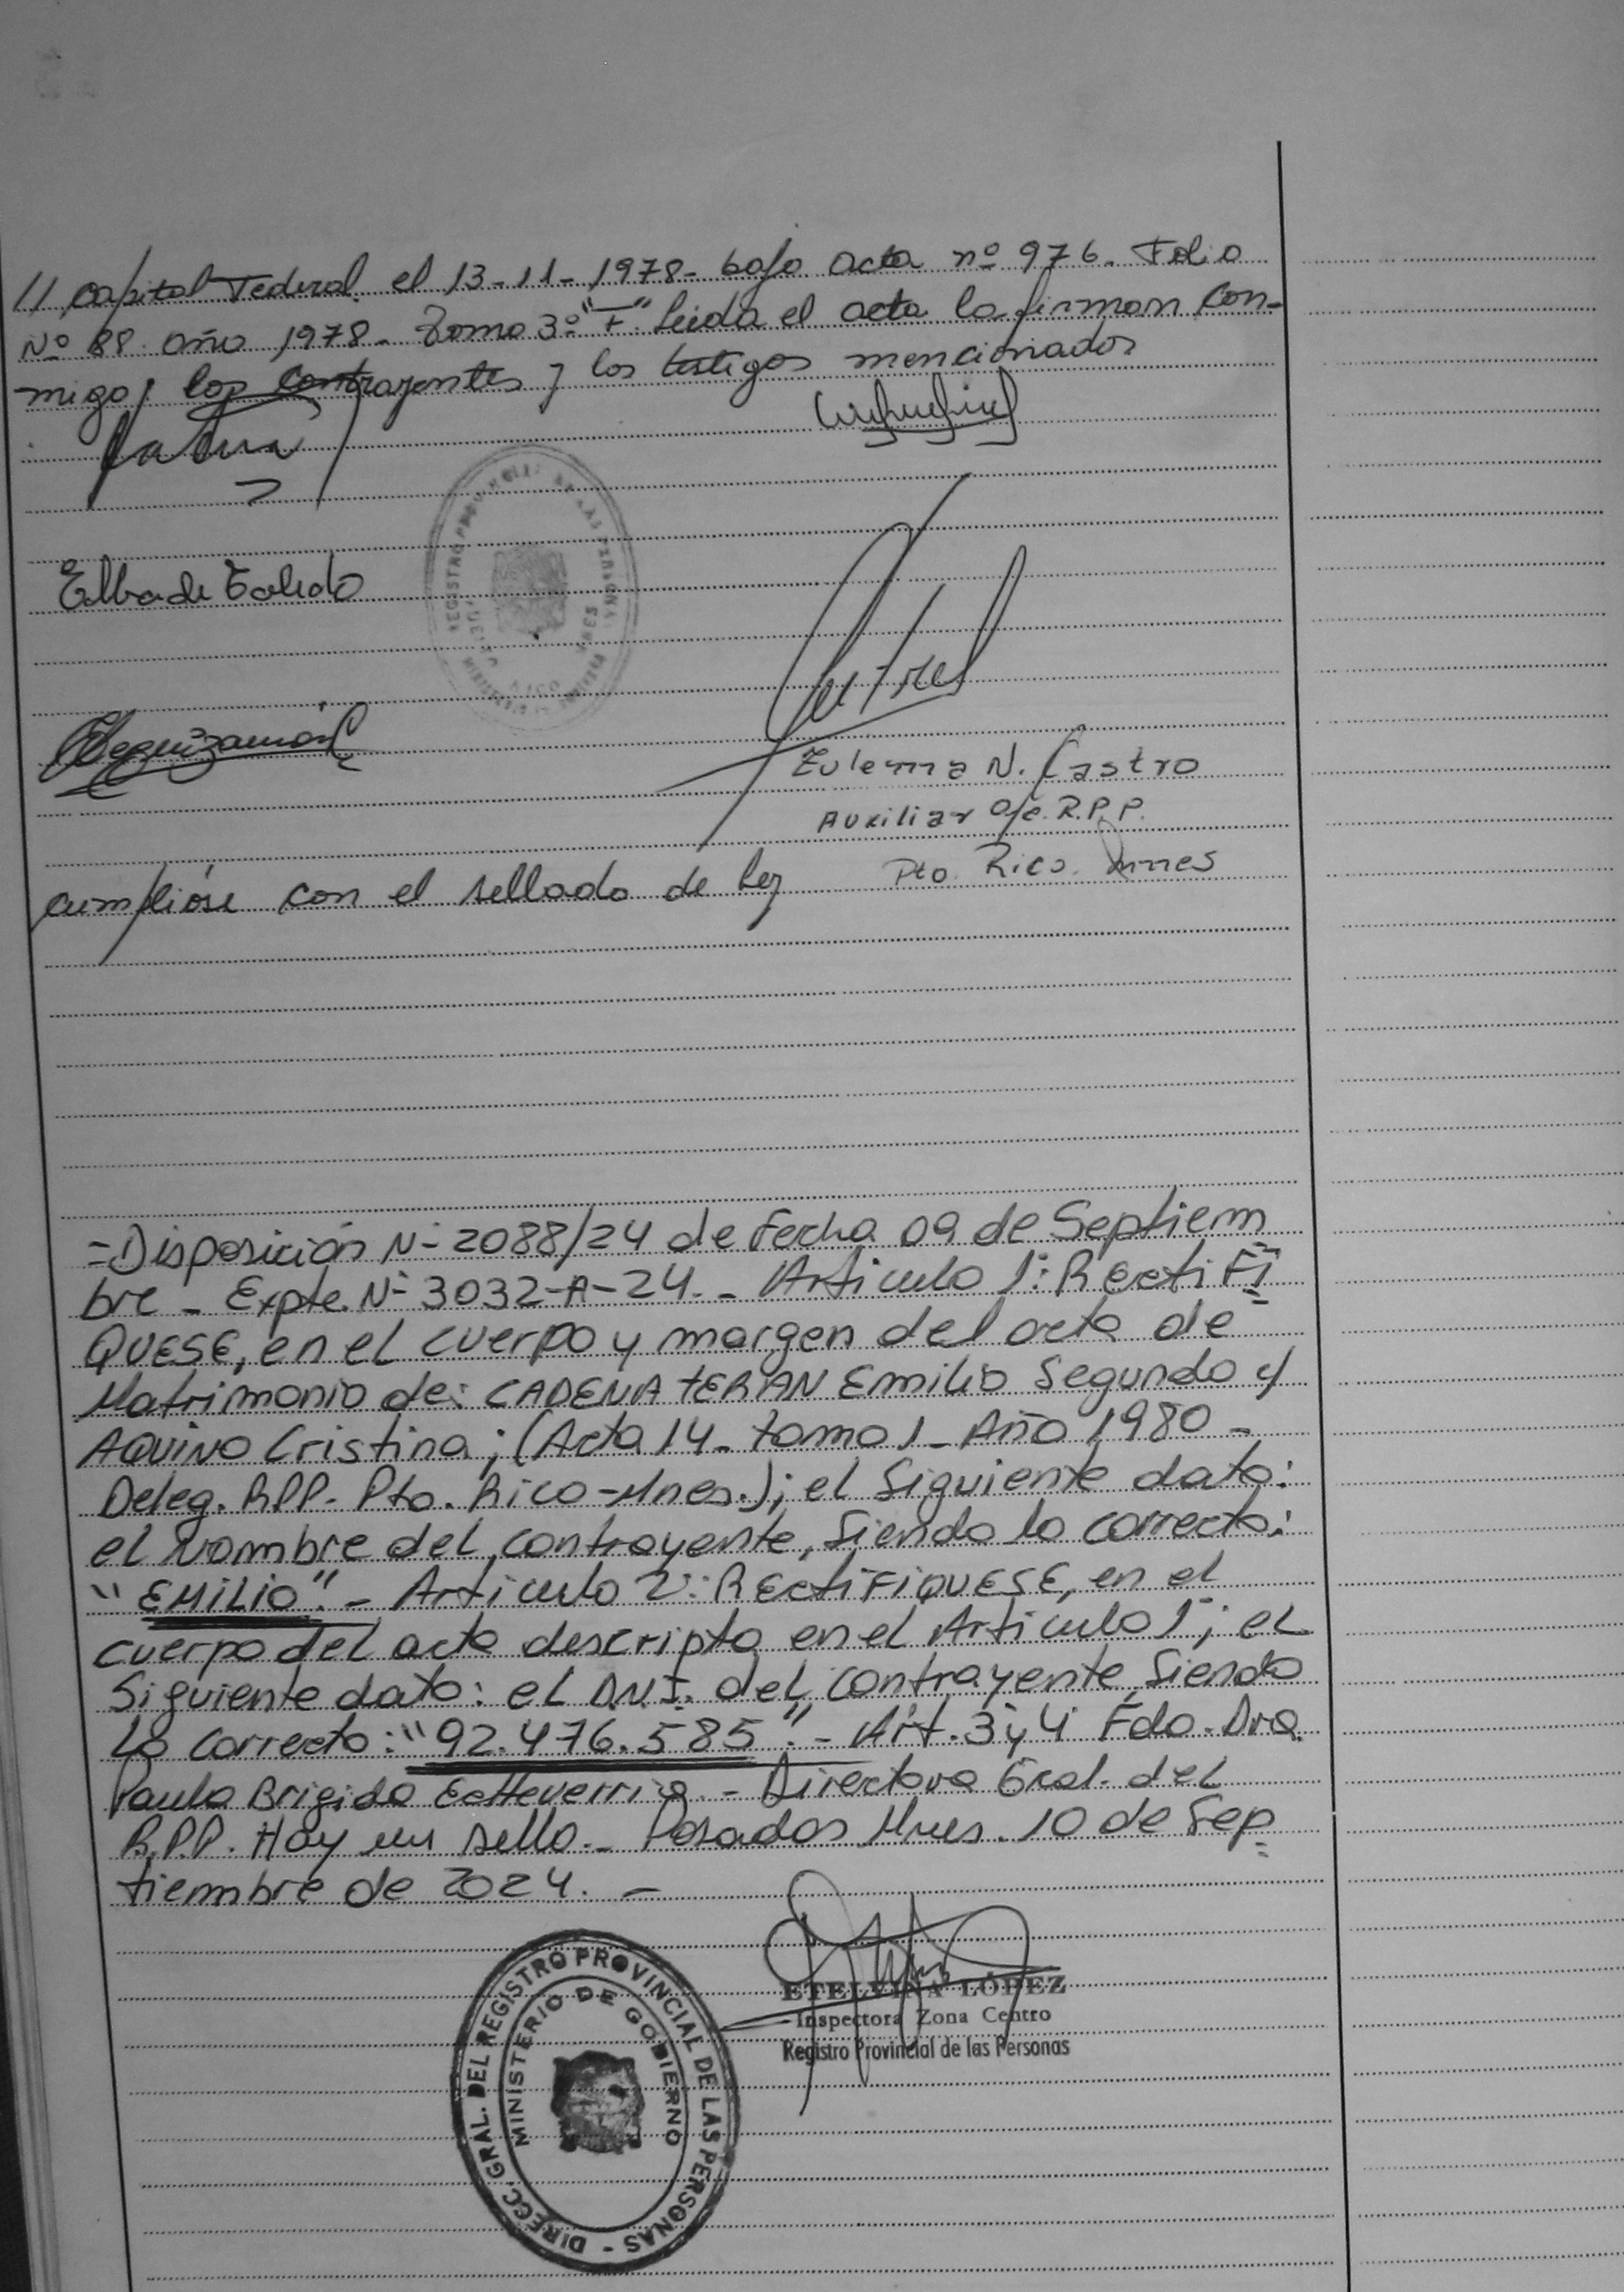 // Capital Federal. el 13-11-1978- bajo acta nº 976. Folio
Nº 88. año 1978- Tomo 3º "F". Leída el acta la firman con-
migo, los contrayentes y los testigos mencionados
Elba de Toledo
Leguizamón
Zulema N. Castro
Auxiliar a/c. R.P.P.
Pto. Rico. Mnes
cumplióse con el sellado de ley
=Disposición N- 2088/24 de Fecha 09 de Septiem
bre - Expte. N- 3032-A-24.- Articulo 1: RectiFi
QUESE, en el cuerpo y margen del acta de
Matrimonio de: CADENA TERAN Emilio Segundo y
AQUINO Cristina; (Acta 14- tomo 1- Año 1980 -
Deleg. RPP- Pto. Rico-Mnes.); el Siguiente dato:
el Nombre del contrayente, Siendo lo correcto:
"EMILIO".- Articulo 2: RECtiFIQUESE, en el
cuerpo del acta descripta en el Articulo 1; el
Siguiente dato: el D.N.I. del contrayente, Siendo
Lo Correcto: "92.476.585".- Art. 3 y 4 Fdo. Dra.
Paula Brigido Echeverria.- Directora Gral. del
R.P.P. Hay un sello.- Posadas Mnes. 10 de Sep
tiembre de 2024. -
ETELVINA LÓPEZ
Inspectora Zona Centro
Registro Provincial de las Personas
DIRECC. GRAL. DEL REGISTRO PROVINCIAL DE LAS PERSONAS -
MINISTERIO DE GOBIERNO